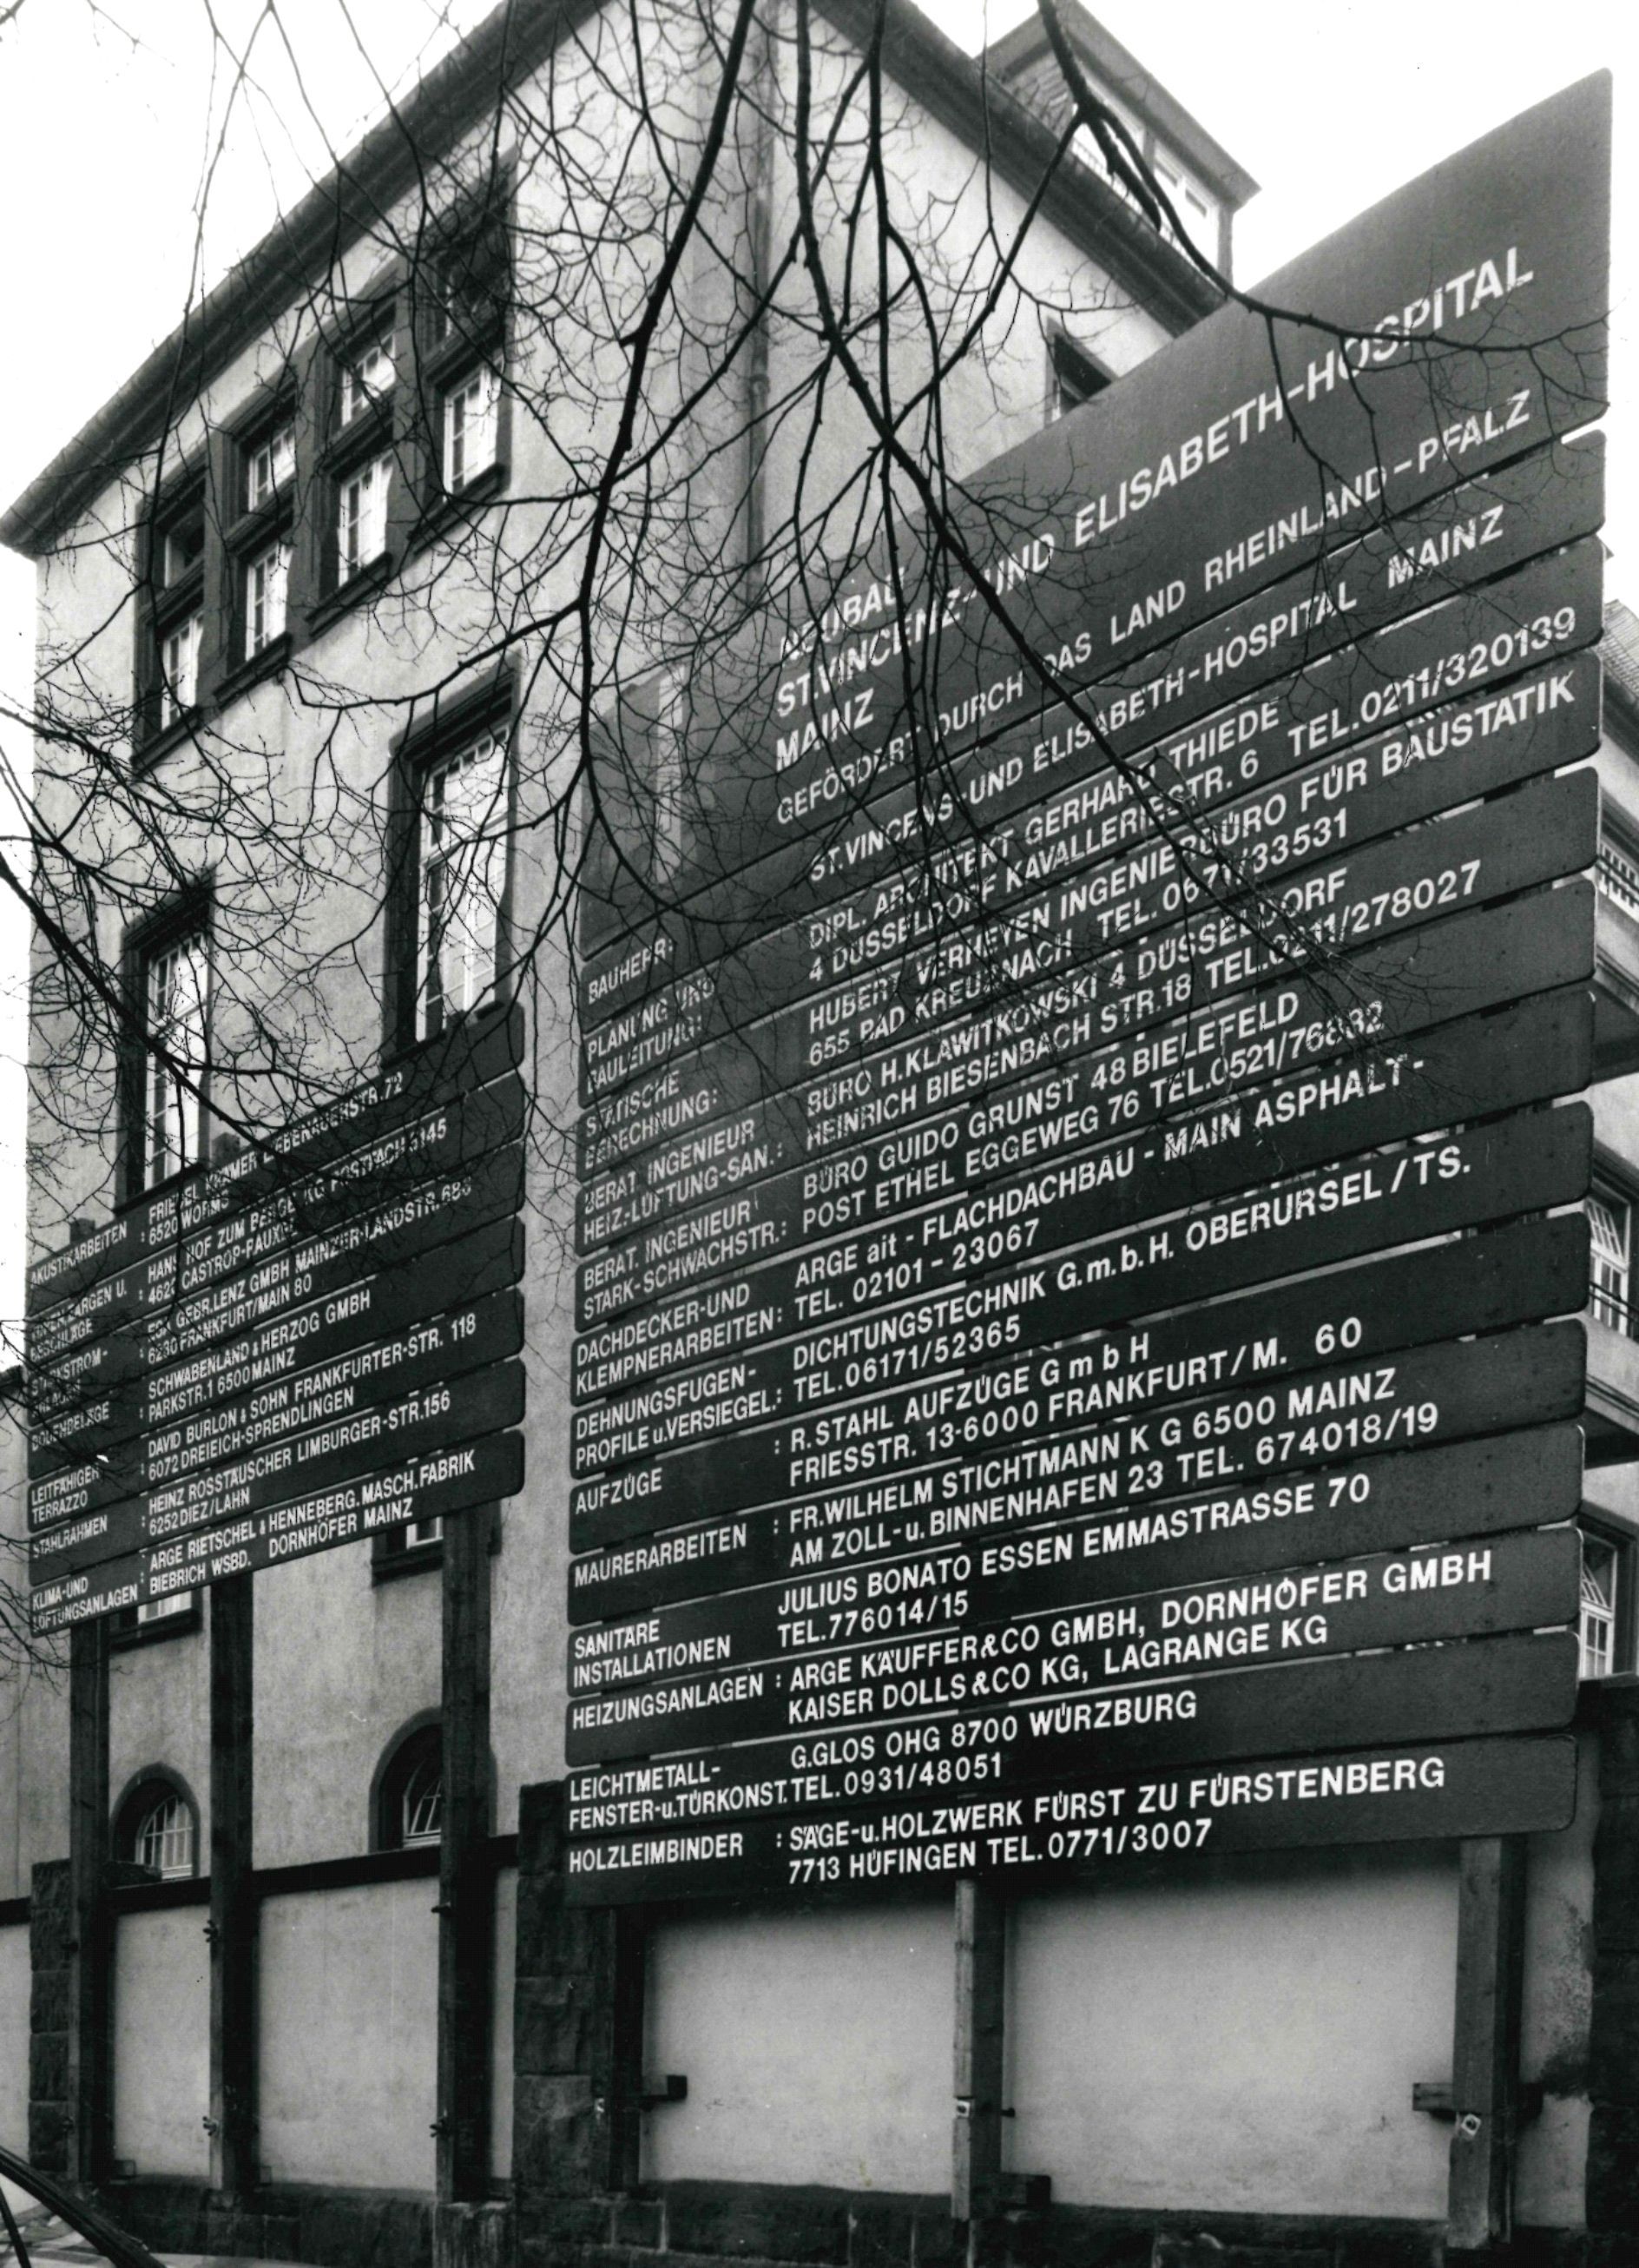 NEUBAU
ST.VINCENZ-UND ELISABETH-HOSPITAL
MAINZ
GEFÖRDERT DURCH DAS LAND RHEINLAND-PFALZ
BAUHERR: ST.VINCENS-UND ELISABETH-HOSPITAL MAINZ
PLANUNG UND DIPL. ARCHITEKT GERHARD THIEDE
BAULEITUNG: 4 DÜSSELDORF KAVALLERIESTR. 6 TEL.0211/320139
STATISCHE HUBERT VERHEYEN INGENIEURBÜRO FÜR BAUSTATIK
BERECHNUNG: 655 BAD KREUZNACH TEL. 0671/33531
BERAT. INGENIEUR BÜRO H.KLAWITKOWSKI 4 DÜSSELDORF
HEIZ.-LÜFTUNG-SAN.: HEINRICH BIESENBACH STR.18 TEL.0211/278027
BERAT. INGENIEUR BÜRO GUIDO GRUNST 48 BIELEFELD
STARK-SCHWACHSTR.: POST ETHEL EGGEWEG 76 TEL.0521/76832
DACHDECKER-UND ARGE ait - FLACHDACHBAU - MAIN ASPHALT-
KLEMPNERARBEITEN: TEL. 02101-23067
DEHNUNGSFUGEN- DICHTUNGSTECHNIK G.m.b.H. OBERURSEL/TS.
PROFILE u.VERSIEGEL.: TEL.06171/52365
AUFZÜGE : R.STAHL AUFZÜGE G m b H
FRIESSTR. 13-6000 FRANKFURT/M. 60
MAURERARBEITEN : FR.WILHELM STICHTMANN K G 6500 MAINZ
AM ZOLL-u.BINNENHAFEN 23 TEL. 674018/19
SANITÄRE JULIUS BONATO ESSEN EMMASTRASSE 70
INSTALLATIONEN TEL.776014/15
HEIZUNGSANLAGEN : ARGE KÄUFFER&CO GMBH, DORNHÖFER GMBH
KAISER DOLLS&CO KG, LAGRANGE KG
LEICHTMETALL- G.GLOS OHG 8700 WÜRZBURG
FENSTER-u.TÜRKONST. TEL.0931/48051
HOLZLEIMBINDER : SÄGE-u.HOLZWERK FÜRST ZU FÜRSTENBERG
7713 HÜFINGEN TEL.0771/3007
AKUSTIKARBEITEN : KRÄMER LIEBENAUERSTR.72
6520 WORMS
ZARGEN U. HANS HOF ZUM BERGE KG POSTFACH 5145
BESCHLÄGE : 462 CASTROP-RAUXEL
GEBR.LENZ GMBH MAINZER-LANDSTR.686
6230 FRANKFURT/MAIN 80
BODENBELÄGE : SCHWABENLAND & HERZOG GMBH
PARKSTR.1 6500 MAINZ
LEITFÄHIGER : DAVID BURLON & SOHN FRANKFURTER-STR. 118
TERRAZZO 6072 DREIEICH-SPRENDLINGEN
STAHLRAHMEN : HEINZ ROSSTÄUSCHER LIMBURGER-STR.156
6252 DIEZ/LAHN
KLIMA-UND ARGE RIETSCHEL & HENNEBERG. MASCH.FABRIK
LÜFTUNGSANLAGEN : BIEBRICH WSBD. DORNHÖFER MAINZ